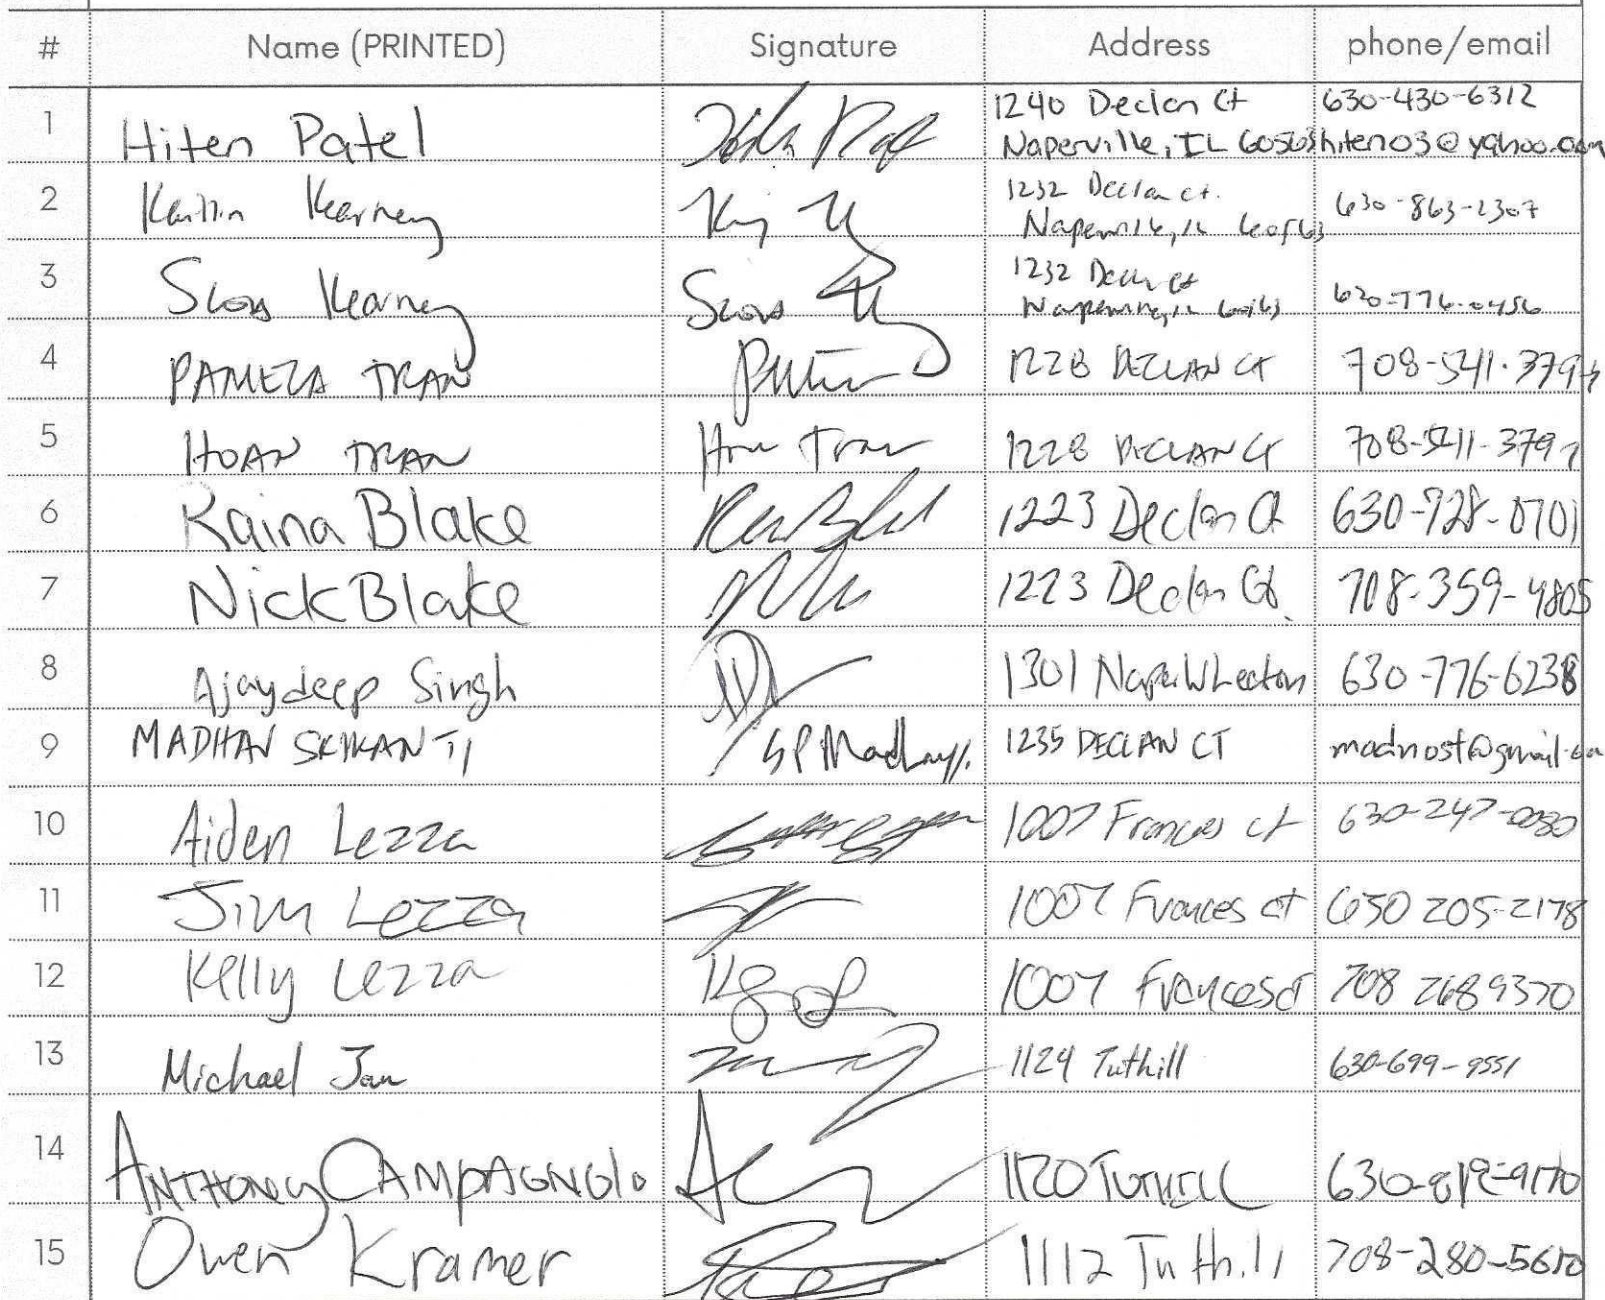 # Name (PRINTED) Signature Address phone/email
1 Hiten Patel 1240 Declan Ct 630-430-6312
Naperville, IL 60563 hiten03@yahoo.com
2 Kaitlin Kearney 1232 Declan ct. 630-863-2307
Naperville, IL 60563
3 Scott Kearney Scott 1232 Declan Ct
Naperville, IL 60563 630-776-0456
4 PAMELA TRAN 1228 DECLAN CT 708-541-379
5 HOAN TRAN Hoan Tran 1228 DECLAN CT 708-541-3797
6 Raina Blake 1223 Declan Ct 630-728-0701
7 Nick Blake 1223 Declan Ct. 708-359-4805
8 Ajaydeep Singh 1301 Naper 630-776-6238
9 MADHAV SRIKANTI SP Madhav 1235 DECLAN CT madnost@gmail.com
10 Aiden Lezza 1007 Frances ct 630-247-0080
11 Jim Lezza 1007 Frances ct 630 205-2178
12 Kelly Lezza 1007 Frances ct 708 268 9370
13 Michael Jan 1124 Tuthill 630-699-9551
14 ANTHONY CAMPAGNOLO 1120 TUTHILL
15 Owen Kramer 1112 Tuthill 708-280-5610